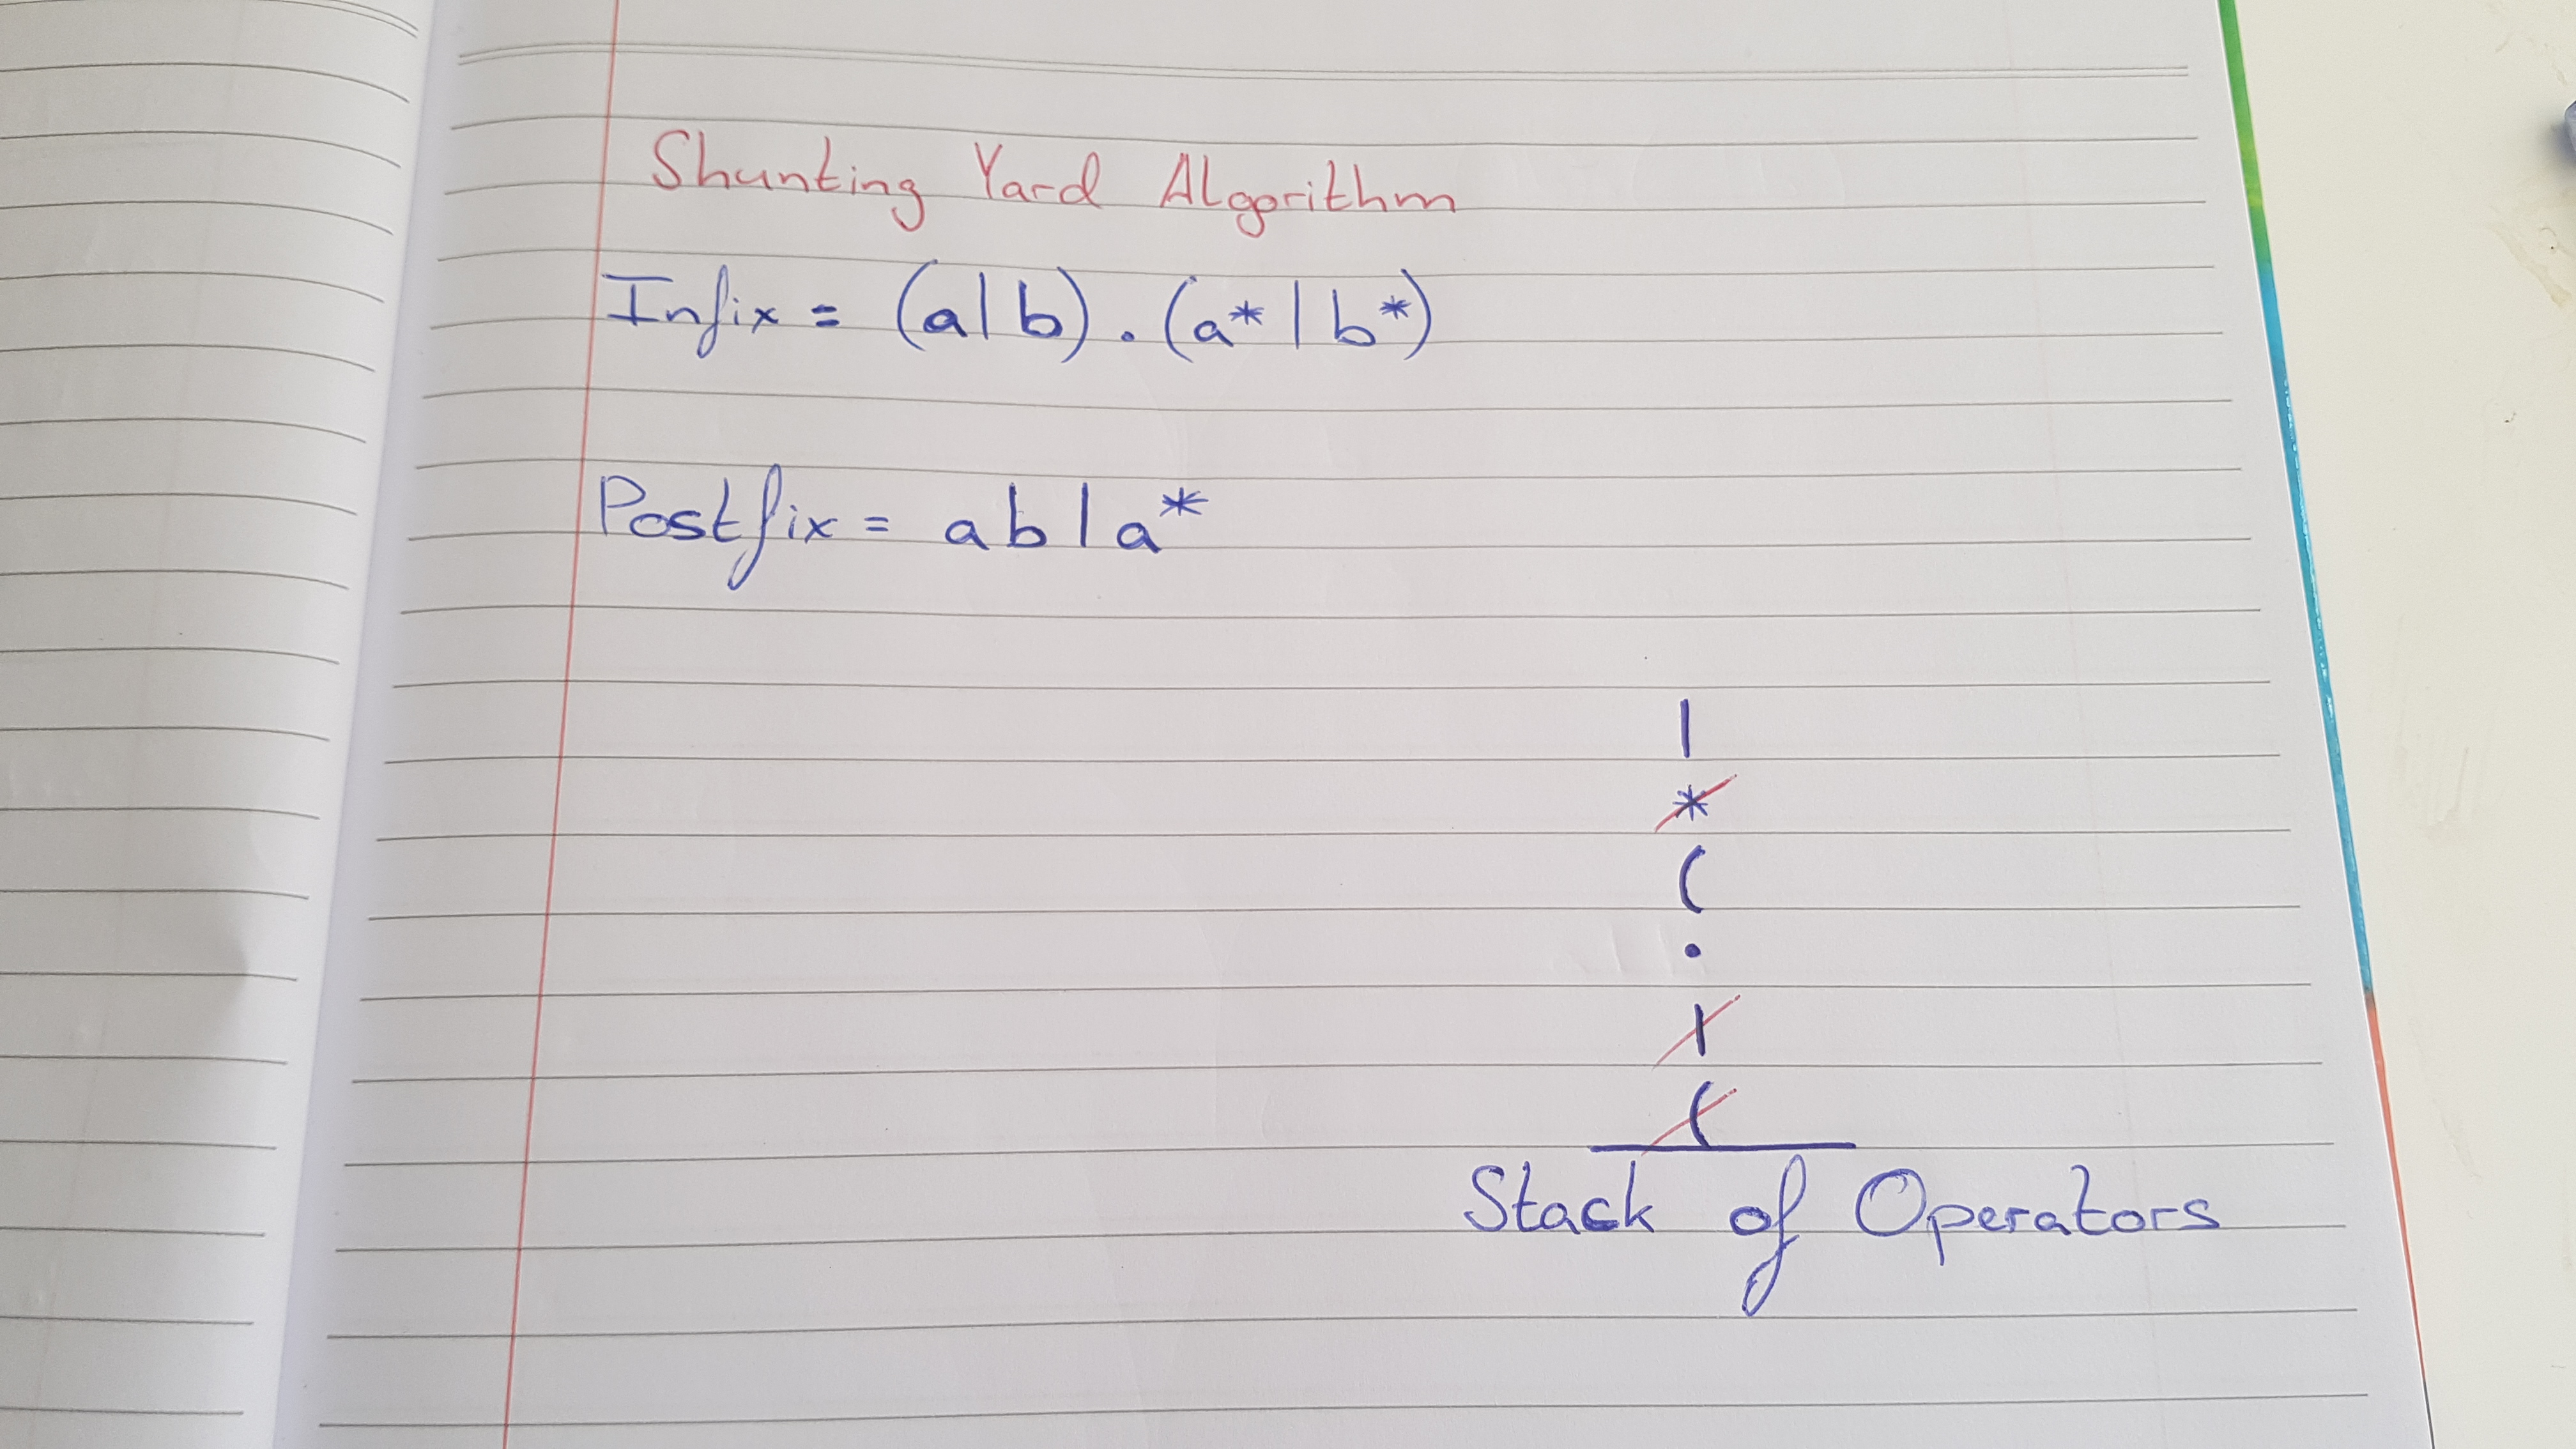 Shunting Yard Algorithm
Infix = (a|b).(a*|b*)
Postfix = ab|a*
|
*
(
.
|
(
Stack of Operators